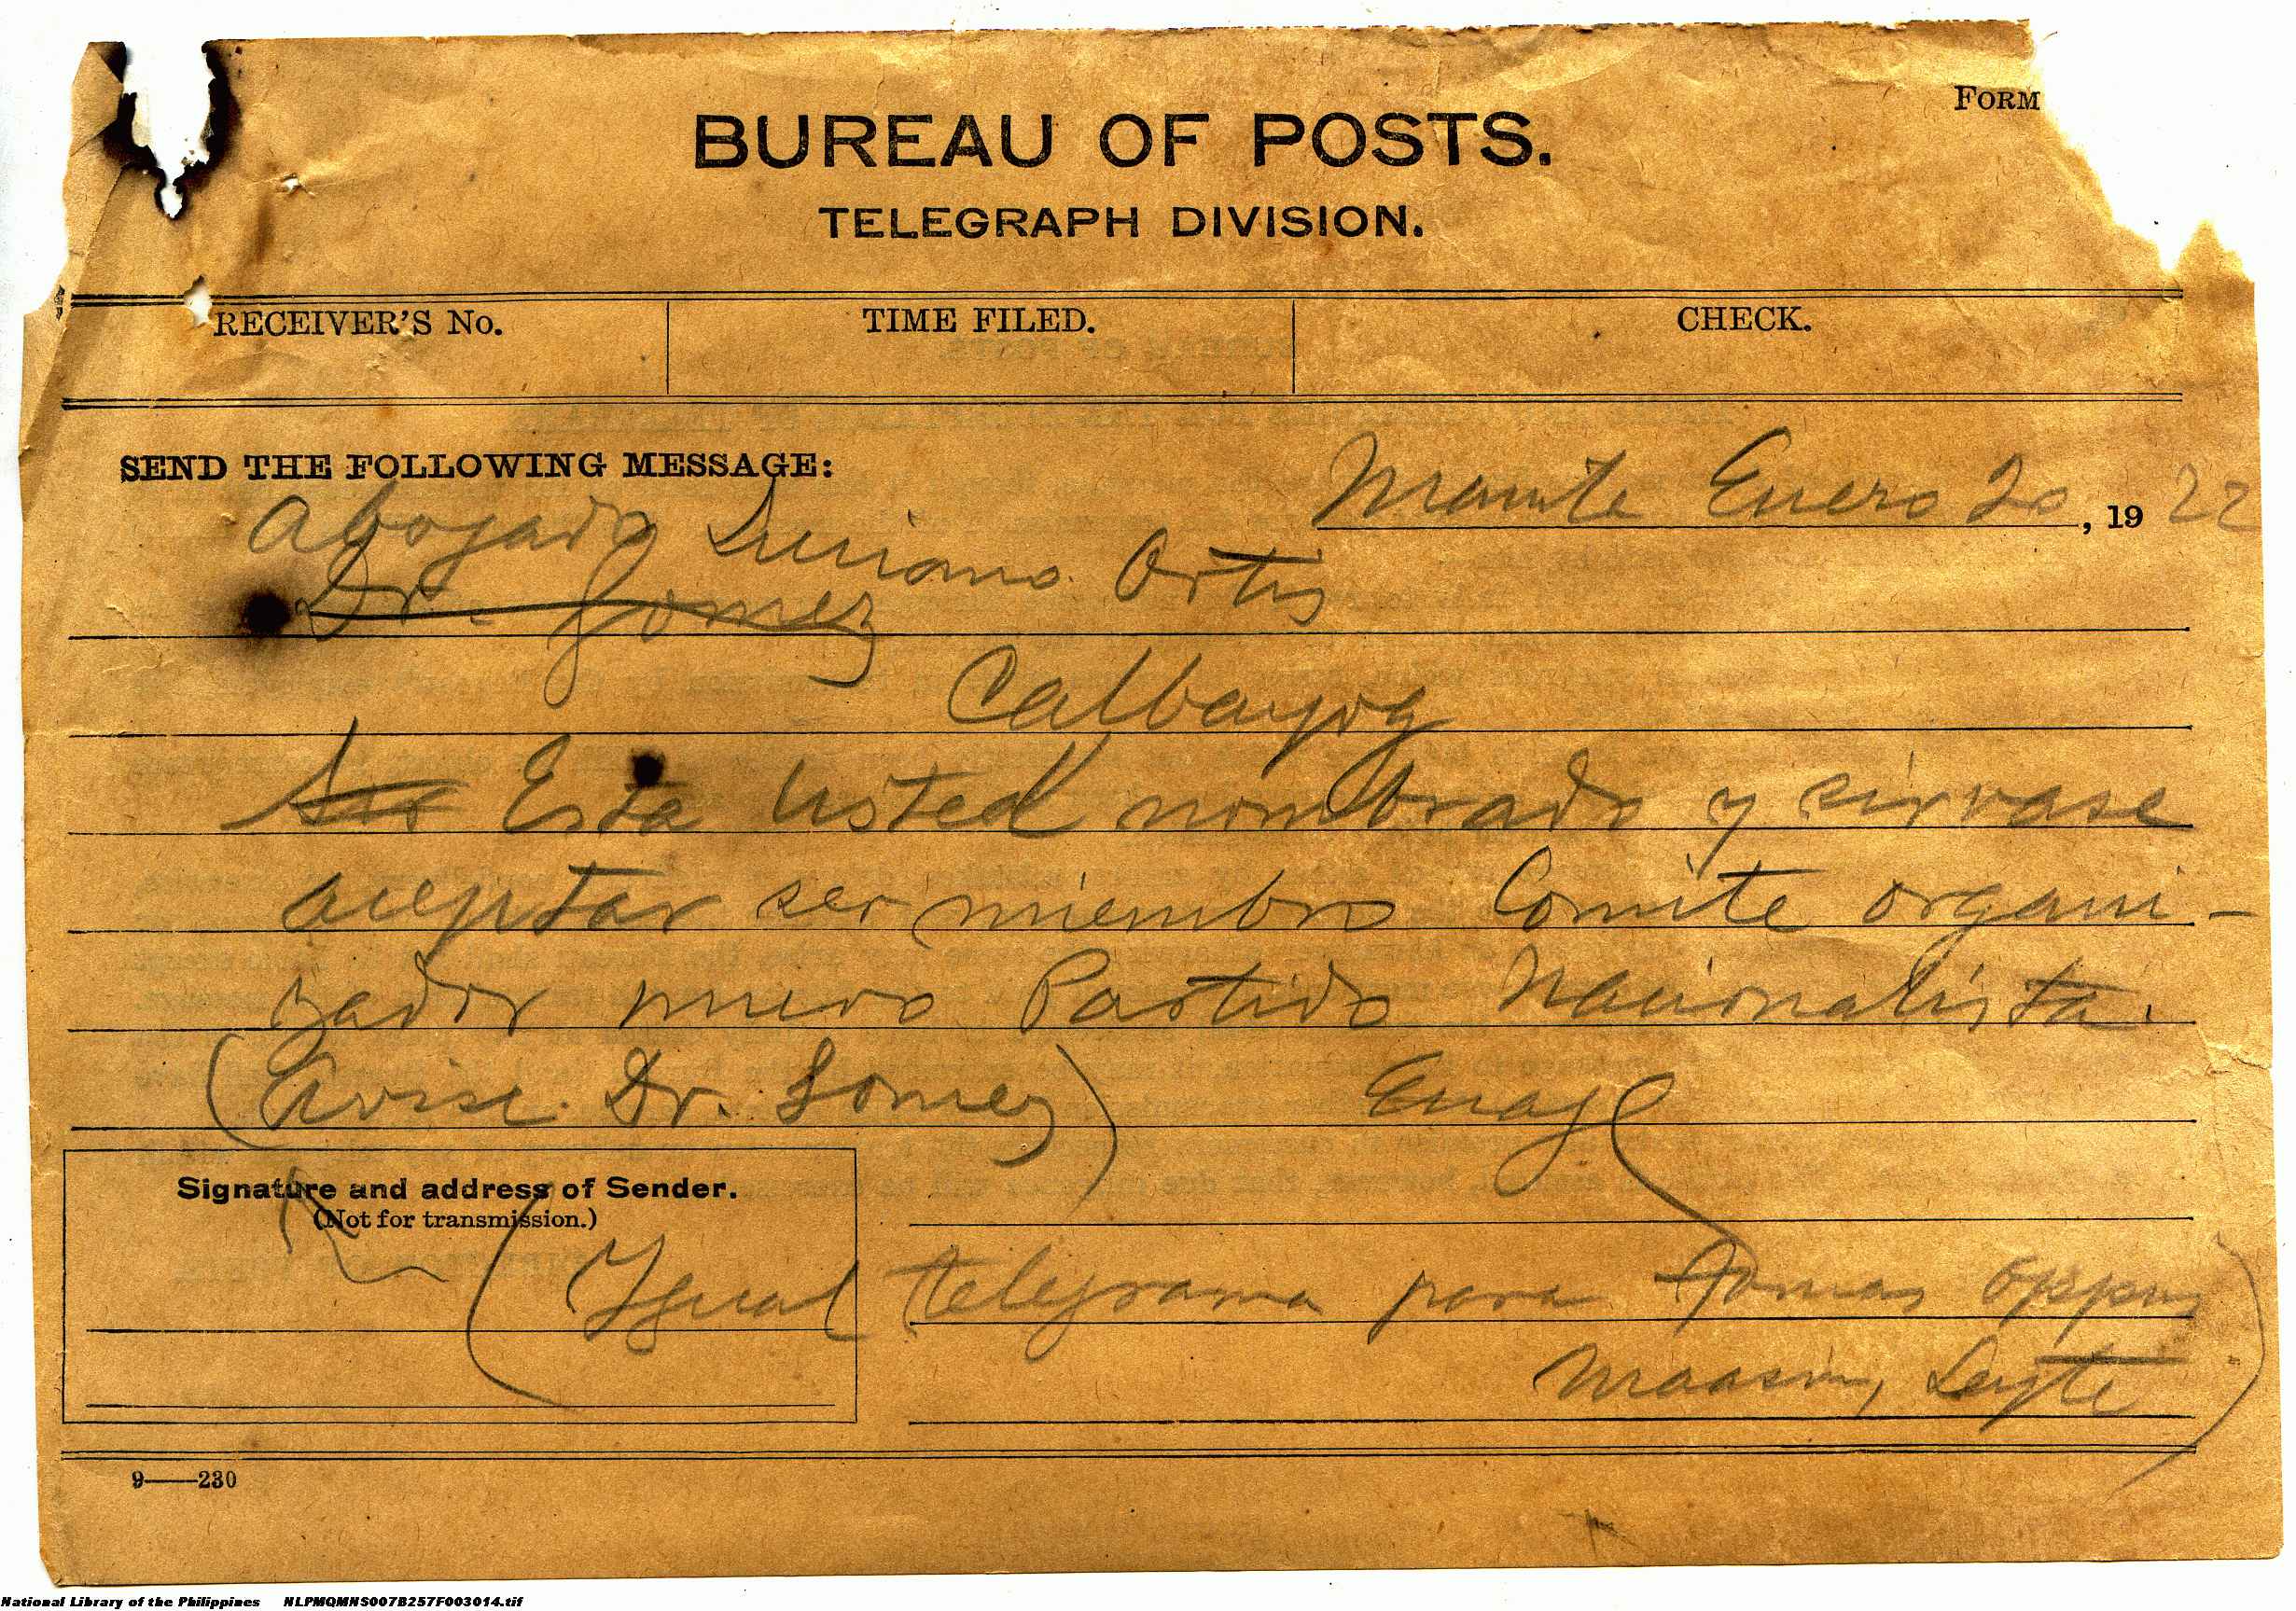 FORM
BUREAU OF POSTS.
TELEGRAPH DIVISION.
RECEIVER'S No. TIME FILED. CHECK.
SEND THE FOLLOWING MESSAGE:
Enero 20, 19 22
Abogado Luciano Ortis
Dr. Gomez
Calbayog
Esta usted nombrado y sirvase
aceptar ser miembro Comite organi-
zador nuevo Partido Nacionalista.
(Avise Dr. Gomez)
Signature and address of Sender.
(Not for transmission.)
(Igual telegrama para Tomas Oppus
Maasin, Leyte)
9——230
National Library of the Philippines NLPMQMNS007B257F003014.tif